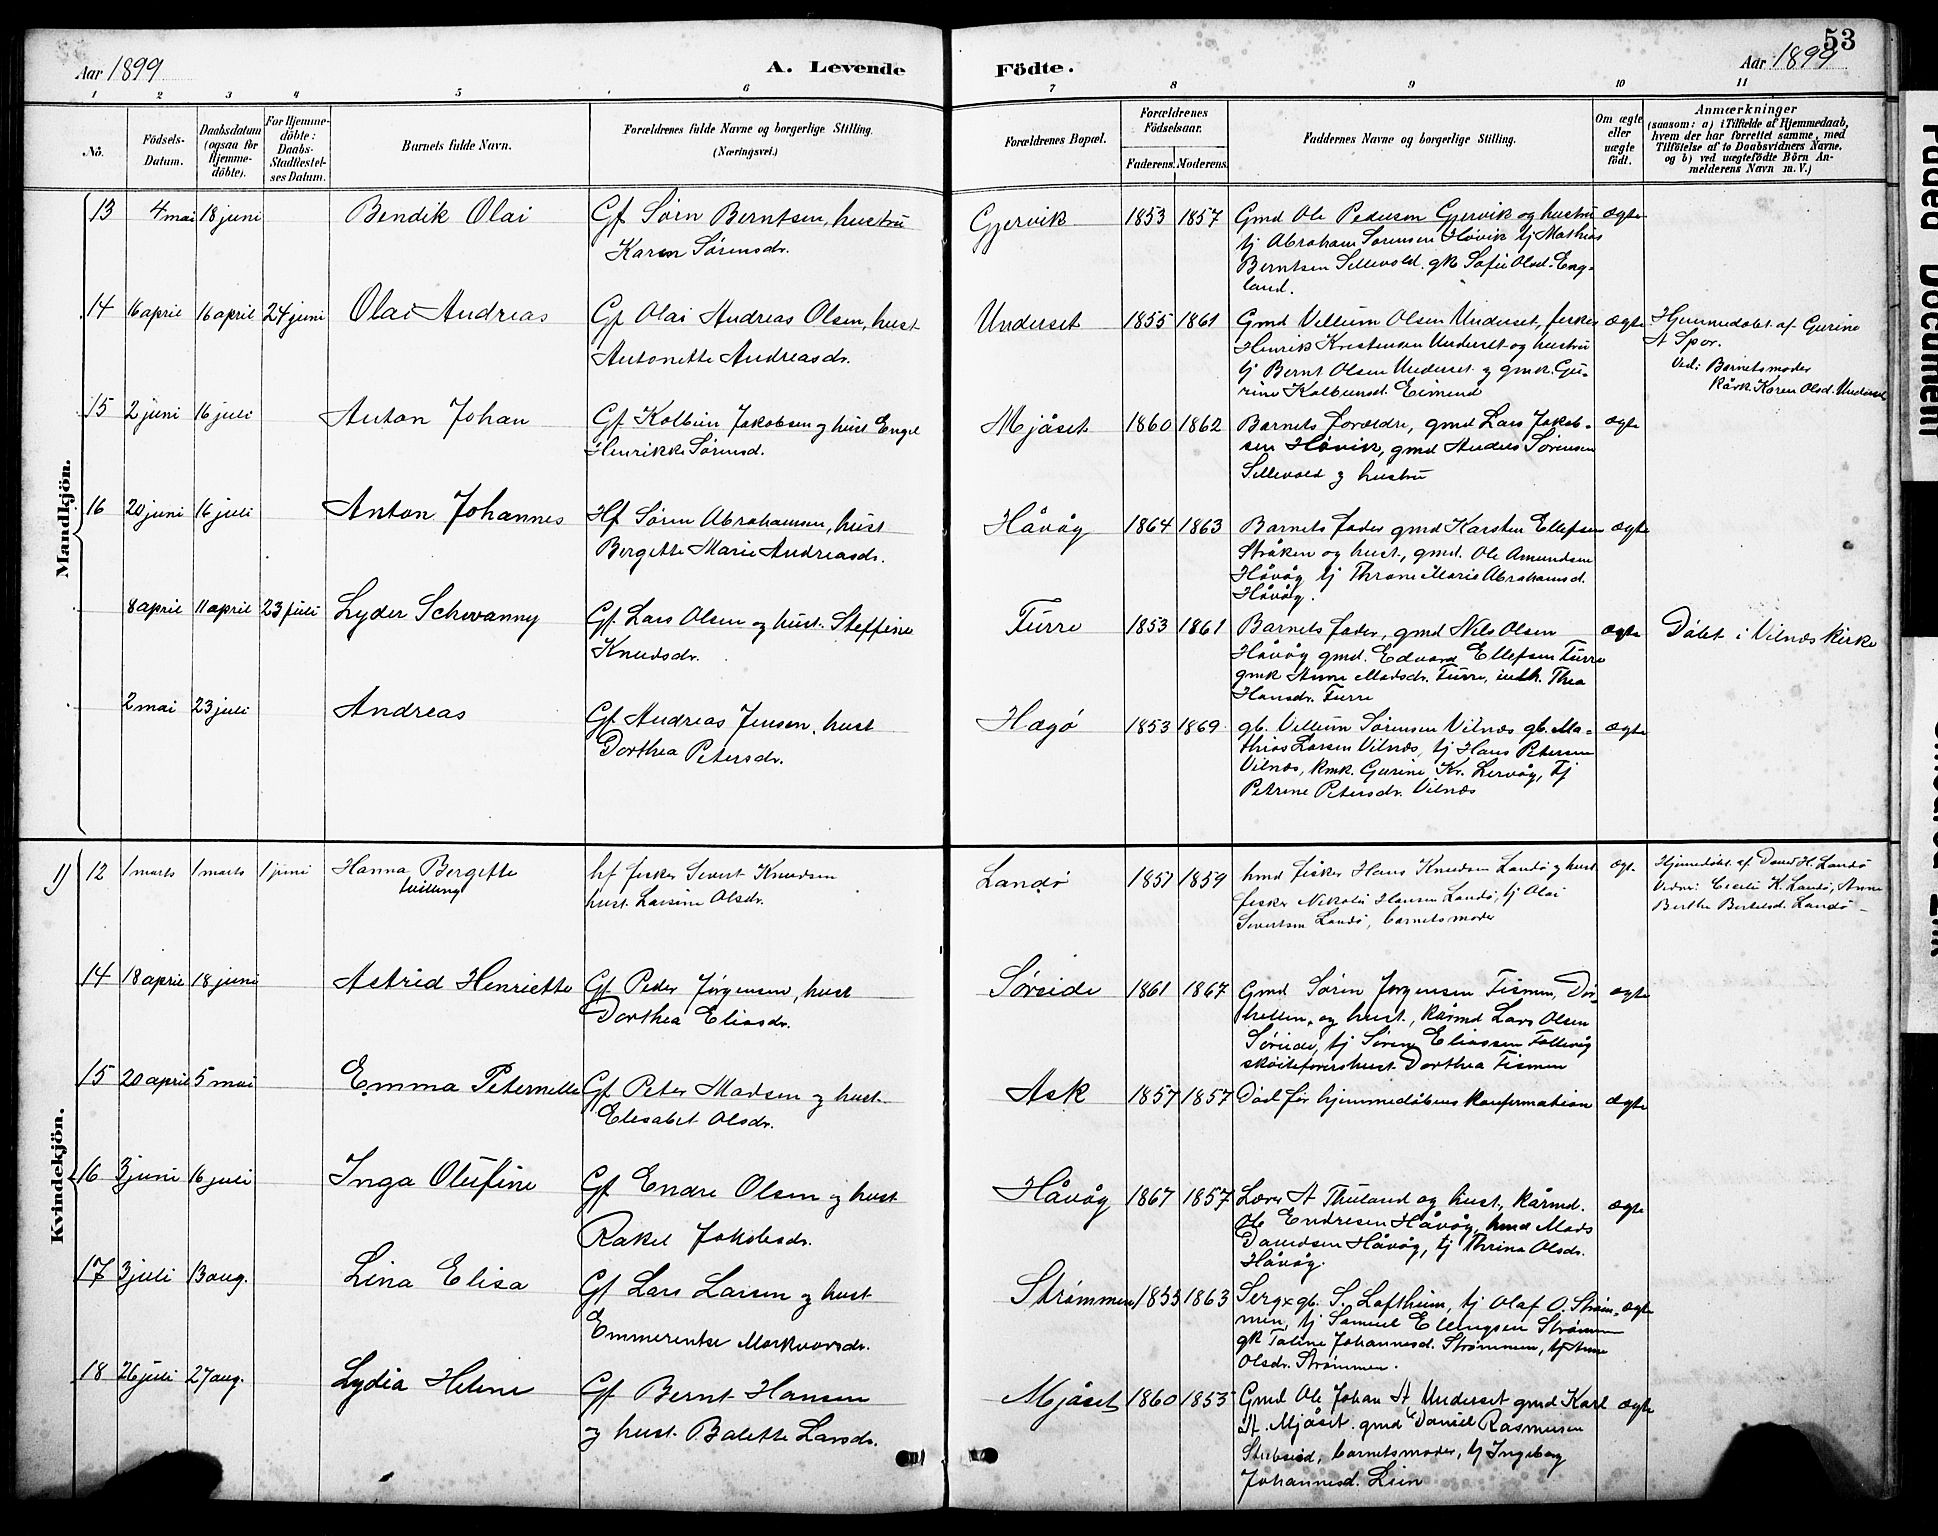 53
Aar 1899
A. Levende
Födte.
Aar 1899
1 2 3 4 5 6 7 8 9 10 11
Nö.
Födsels-
Datum.
Daabsdatum
(ogsaa for
Hjemme-
döbte).
For Hjemme-
döbte:
Daabs-
Stadfæstel-
ses Datum.
Barnets fulde Navn.
Forældrenes fulde Navne og borgerlige Stilling.
(Næringsvei.)
Forældrenes Bopæl.
Forældrenes
Födselsaar.
Faderens. Moderens.
Faddernes Navne og borgerlige Stilling.
Om ægte
eller
uægte
født.
Anmærkninger
(saasom: a) i Tilfælde af Hjemmedaab,
hvem der har forrettet samme, med
Tilföielse af to Daabsvidners Navne,
og b) ved uægtefödte Börn An-
melderens Navn m. V.)
Mandkjön.
13 4 mai 18 juni Bendik Olai Gf Sørn Berntsen, hustru
Karen Sørensdr.
Gjervik 1853 1857 Gmd Ole Pedersen Gjervik og hustru ægte
tj Abraham Sørensen Høvik tj Mathias
Berntsen Sellevold. gk Sofie Olsd. Eng-
land.
14 16 april 16 april 24 juni Olai Andreas Gf Olai Andreas Olsen, hust
Antonette Andreasdr.
Underset 1855 1861 Gmd Villum Olsen Underset, fisker ægte
Henrik Kristensen Underset og hustru
tj Bernt Olsen Underset og gmk Gu-
rine Kolbeinsd. Eimind
Hjemmedøbt af Gurine
A Spor.
Vid: Barnets moder
kårk Karen Olsd. Underset
15 2 juni 16 juli Anton Johan Gf Kolbein Jakobsen og hust Engel
Henrikke Sørensd.
Mjåset 1860 1862 Barnets forældre, gmd Lars Jakob- ægte
sen Høvik, gmd Anders Sørensen
Sellevold og hustru
16 20 juni 16 juli Anton Johannes Hf Søren Abrahamsen, hust
Bergette Marie Andreasdr.
Håvåg 1864 1863 Barnets fader gmd Karsten Ellefsen ægte
Stråken og hust, gmd. Ole Amundsen
Håvåg tj Thrane Marie Abrahamsd.
Håvåg.
8 april 11 april 23 juli Lyder Schwanny Gf. Lars Olsen og hust. Steffine
Knudsdr.
Furre 1853 1861 Barnets fader, gmd Nils Olsen ægte
Håvåg gmd. Edvard Ellefsen Furre
gmk Anne Madsdr. Furre, indh. Thea
Hansdr. Furre
Døbt i Vilnæs kirke
2 mai 23 juli Andreas Gf Andreas Jensen, hust
Dorthea Petersdr.
Hægø 1853 1869 gb. Villum Sørensen Vilnæs gb. Ma- ægte
thias Larsen Vilnæs, tj Hans Petersen
Vilnæs, kmk. Gurine Kr. Lervåg, Tj
Petrine Petersdr. Vilnæs
Kvindekjön.
1) 12 1 marts 1 marts 1 juni Hanna Bergette
tvilling
hf fisker Sivert Knudsen
hust. Larsine Olsdr.
Landø 1857 1859 hmd fisker Hans Knudsen Landø og hust ægt.
fisker Nikolai Hansen Landø, tj Olai
Sivertsen Landø, barnets moder
Hjemmedøbt af Daniel H. Landø
Vidner: Cecilie K. Landø, Anne
Berthe Bertelsd. Landø -
14 18 april 18 juni Astrid Henriette Gf Peder Jørgensen, hust
Dorthea Eliasdr.
Sørside 1861 1867 Gmd Søren Jørgensen Fismen, Dor- ægte
hellen, og hust., kårmd Lars Olsen
Sørside, tj Søren Eliassen Follevåg
skøiteførershust Dorthea Fismen
15 20 april 5 mai Emma Peternelle Gf Peter Madsen og hust
Elisabet Olsdr.
Ask 1857 1857 Død før hjemmedåbens konfirmation ægte
16 3 juni 16 juli Inga Olufine Gf Endre Olsen og hust
Rakel Jakobsdr.
Håvåg 1867 1857 Lærer A Thuland og hust, kårmd. ægte
Ole Endresen Håvåg, hmd Mads
Davidsen Håvåg, tj Thrina Olsdr.
Håvåg.
17 3 juli 13 aug. Lina Elisa Gf Lars Larsen og hust
Emmerentse Markvorsdr.
Strømmen 1855 1863 Serg x gb. S. Loftheim, tj Olaf O. Strøm- ægte
men, tj Samuel Ellingsen Strømmen
gk Taline Johannesd. Strømmen, tj Anne
Olsdr. Strømmen.
18 26 juli 27 aug. Lydia Heline Gf Bernt Hansen
og hust. Balette Larsdr.
Mjåset 1860 1853 Gmd Ole Johan A Underset gmd Karl ægte
A. Mjåset. gmd Daniel Rasmussen
Stubseid, barnets moder, tj Ingeborg
Johannesd. Lien